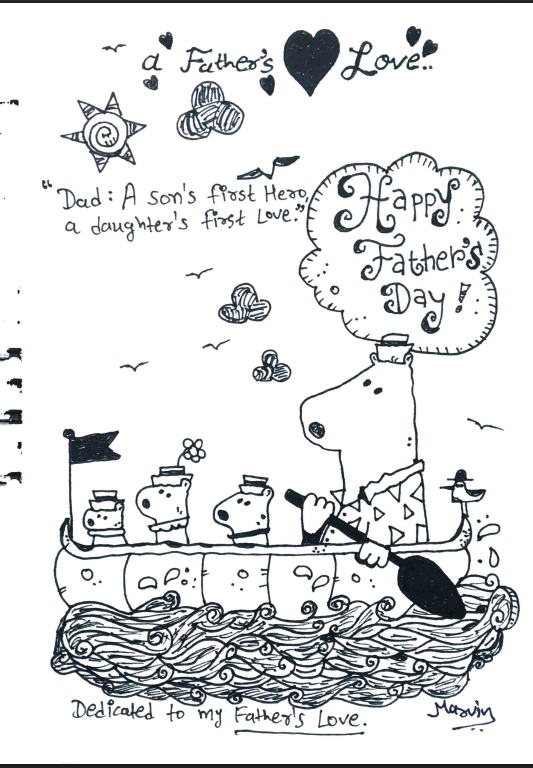 a Father's Love..
"Dad: A son's first Hero,
a daughter's first Love."
Happy
Father's
Day!
Dedicated to my Father's Love.
Marvin